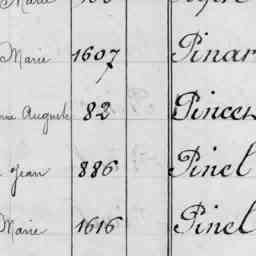 Marie 1607 Pinar
Auguste 82 Pinces
Jean 886 Pinel
Marie 1616 Pinel